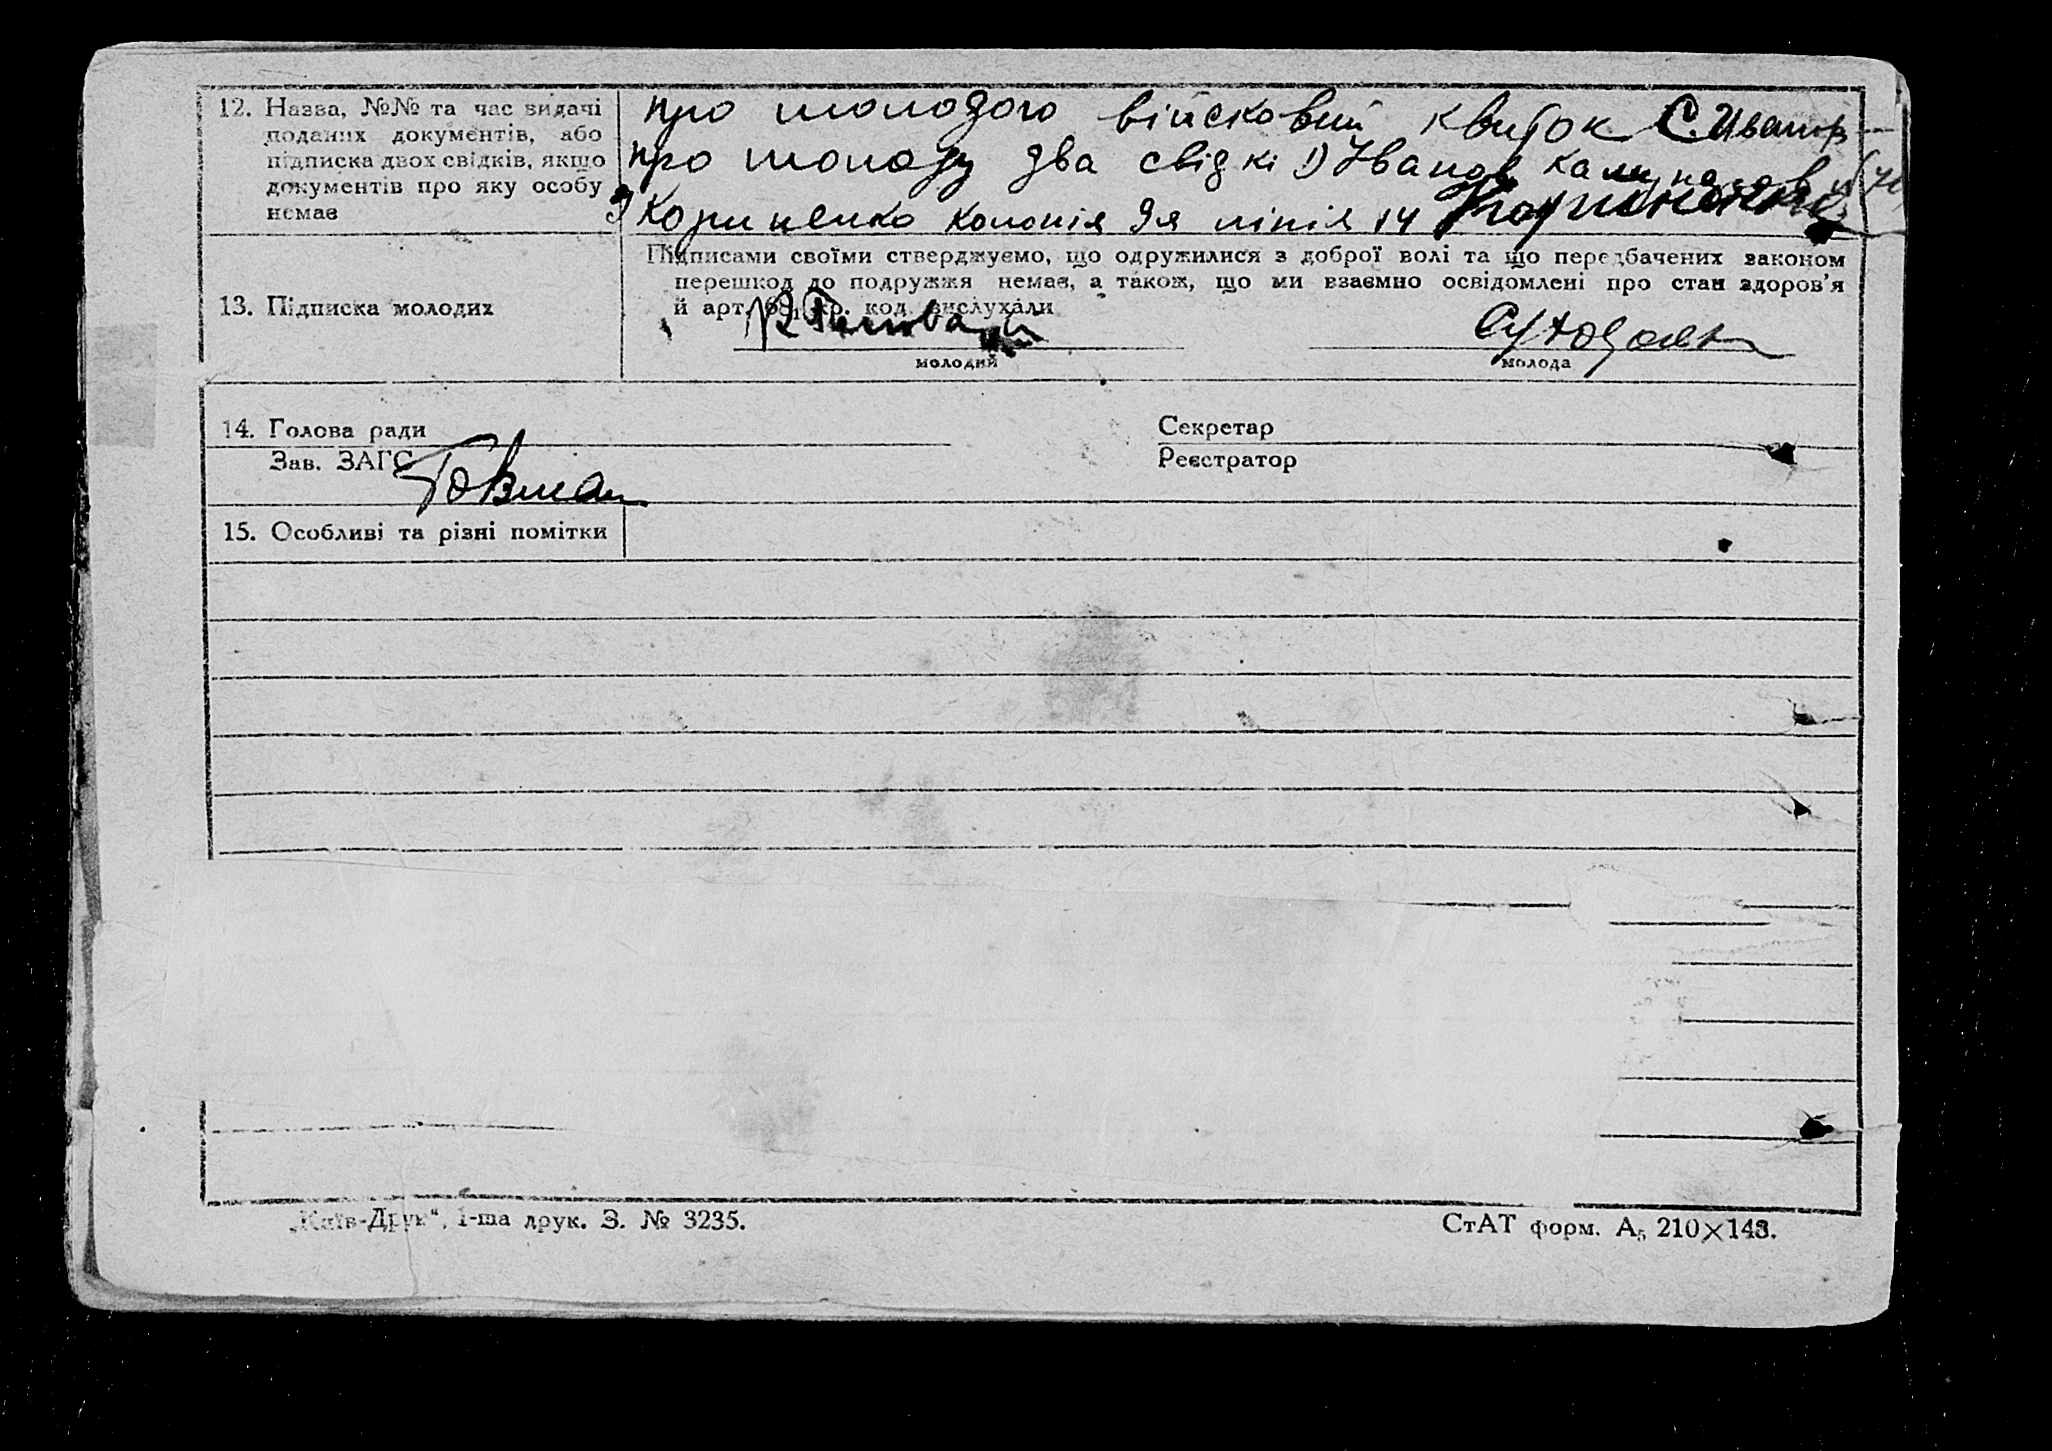 12. Назва, №№ та час видачі
поданих документів, або
підписка двох свідків, якщо
документів про яку особу
немає
про молодого військовий квиток С. Иванов
про молоду два свідкі 1) Іванов
2) Корниенко колонія 9я лінія 14
Підписами своїми стверджуємо, що одружилися з доброї волі та що передбачених законом
перешкод до подружжя немає, а також, що ми взаємно освідомлені про стан здоров'я
й арт. кр. код. вислухали
13. Підписка молодих
молодий
молода
14. Голова ради
Секретар
Зав. ЗАГС
Реєстратор
15. Особливі та різні помітки
„Київ-Друк“, 1-ша друк. З. № 3235.
СтАТ форм. А₅ 210×148.